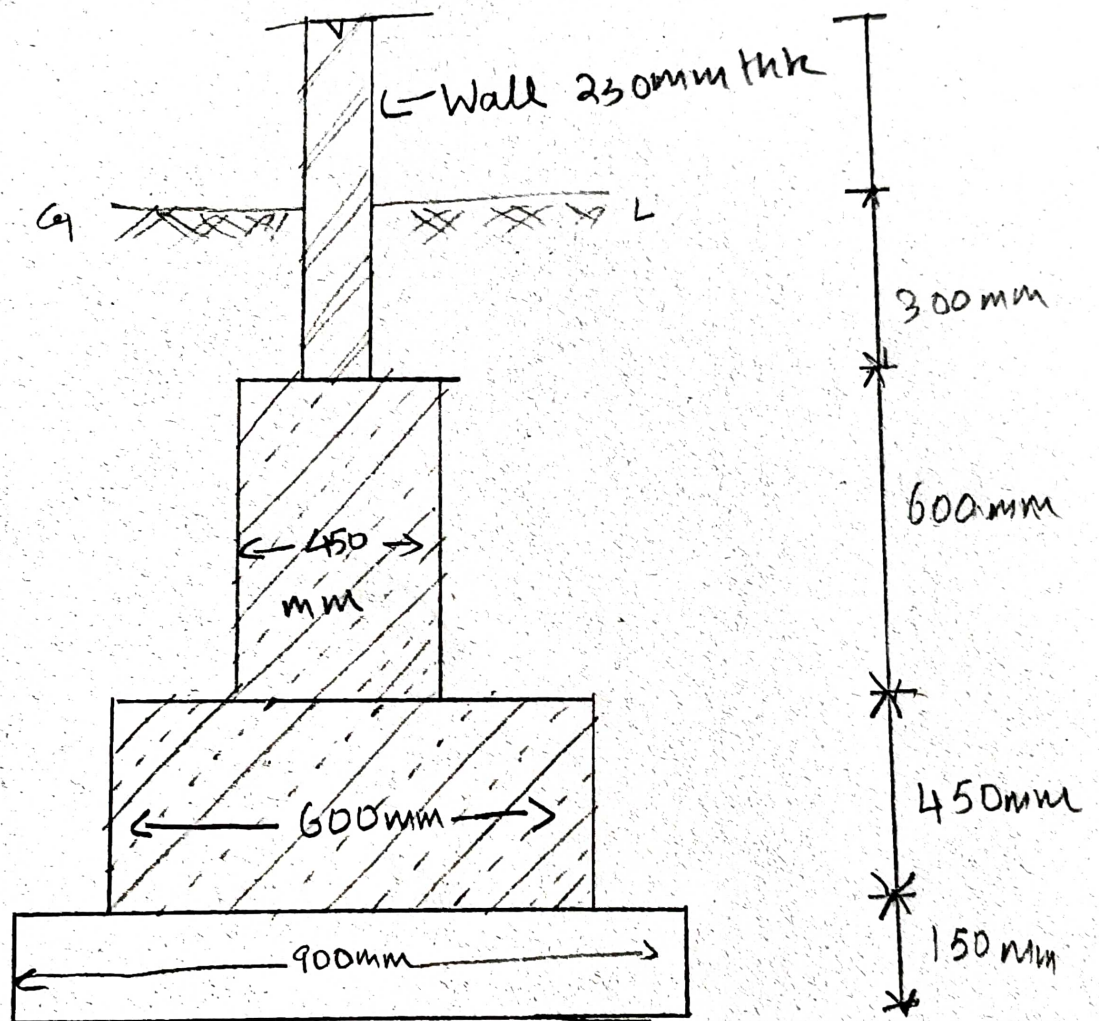 Wall 230mm thk
G L
300mm
600mm
450
mm
600mm
450mm
900mm
150mm